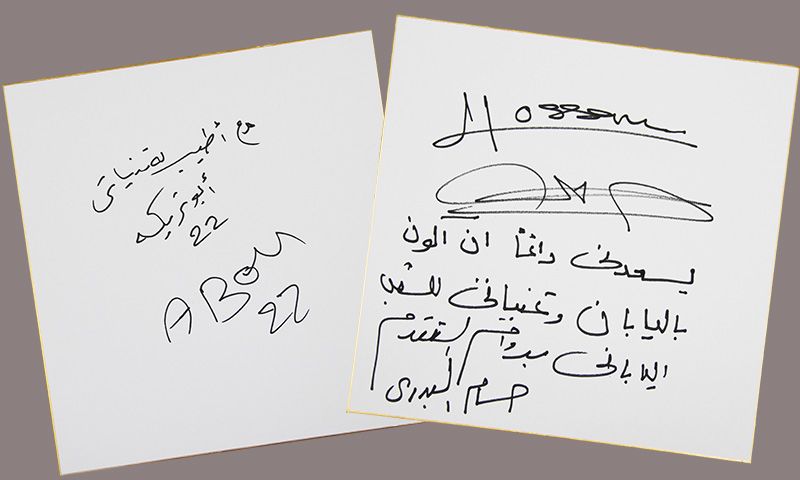 مع أطيب تمنياتى
أبو تريكه
22
ABou
22
Hossam
يسعدنى دائماً ان اكون
باليابان وتمنياتى للشعب
اليابانى التقدم
حسام البدرى